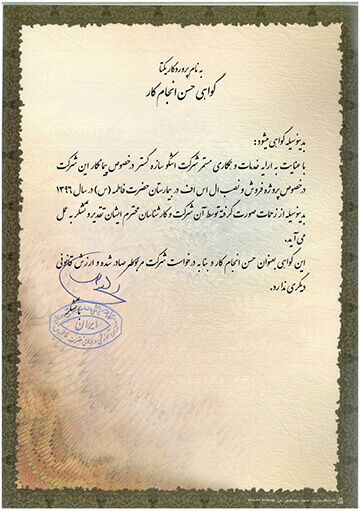 به نام پروردگار یکتا
گواهی حسن انجام کار
بدینوسیله گواهی میشود :
با عنایت به ارایه خدمات و همکاری مستمر شرکت اشکو سازه گستر درخصوص پیمانکار این شرکت
درخصوص پروژه فروش و نصب ال اس اف در بیمارستان حضرت فاطمه (س) در سال ۱۳۹۶
بدینوسیله از زحمات صورت گرفته توسط آن شرکت و کارشناسان محترم ایشان تقدیر و تشکر به عمل
می آید.
این گواهی بعنوان حسن انجام کار و بنا به درخواست شرکت مربوطه صادر شده و ارزش قانونی
دیگری ندارد.
ایران